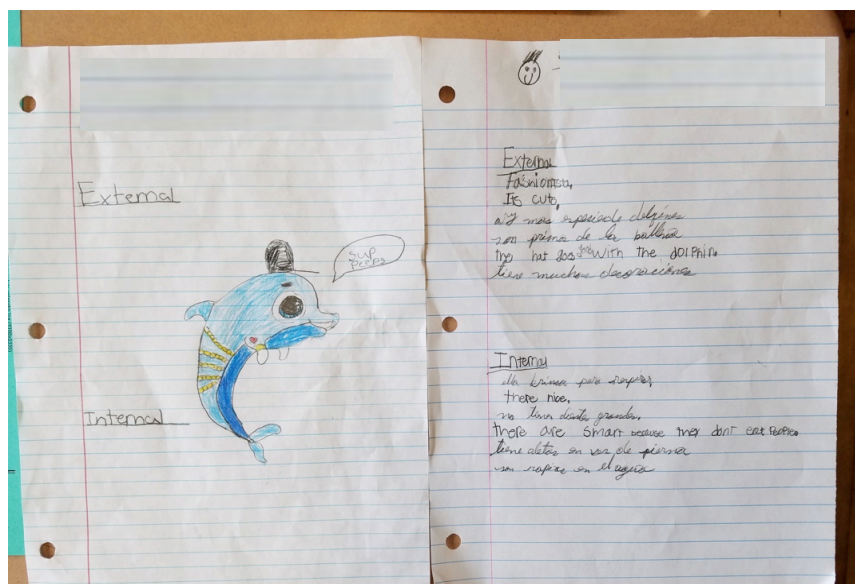 External
sup
peeps
Internal
External
Fashionista,
Its cute,
ay mas especie de delfines
son primos de la ballena
they hat gos with the dolphin
tiene muchas decoraciones
Internal
brinca para respirar,
there nice,
no tiene dientes grandes,
there are smart because they dont eat People
tiene aletas en ves de piernas
son rapidos en el agua